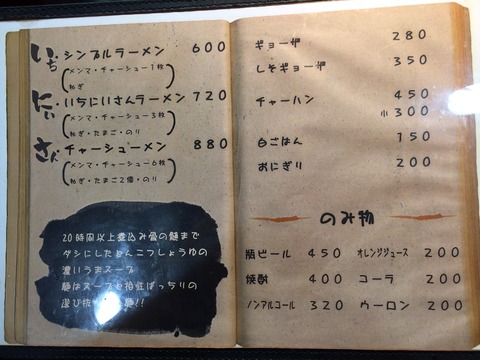 いち シンプルラーメン 600
(メンマ・チャーシュー1枚
ねぎ)
にぃ いちにいさんラーメン 720
(メンマ・チャーシュー3枚
ねぎ・たまご・のり)
さん チャーシューメン 880
(メンマ・チャーシュー6枚
ねぎ・たまご2個・のり)
20時間以上煮込み骨の髄まで
ダシにしたとんこつしょうゆの
濃いうまスープ
麺はスープと相性ばっちりの
選び抜 麺!!
ギョーザ 280
しそギョーザ 350
チャーハン 450
小 300
白ごはん 150
おにぎり 200
のみ物
瓶ビール 450 オレンジジュース 200
焼酎 400 コーラ 200
ノンアルコール 320 ウーロン 200